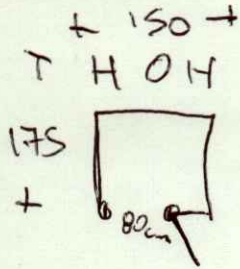 + 150 +
T H O H
175
+
80cm